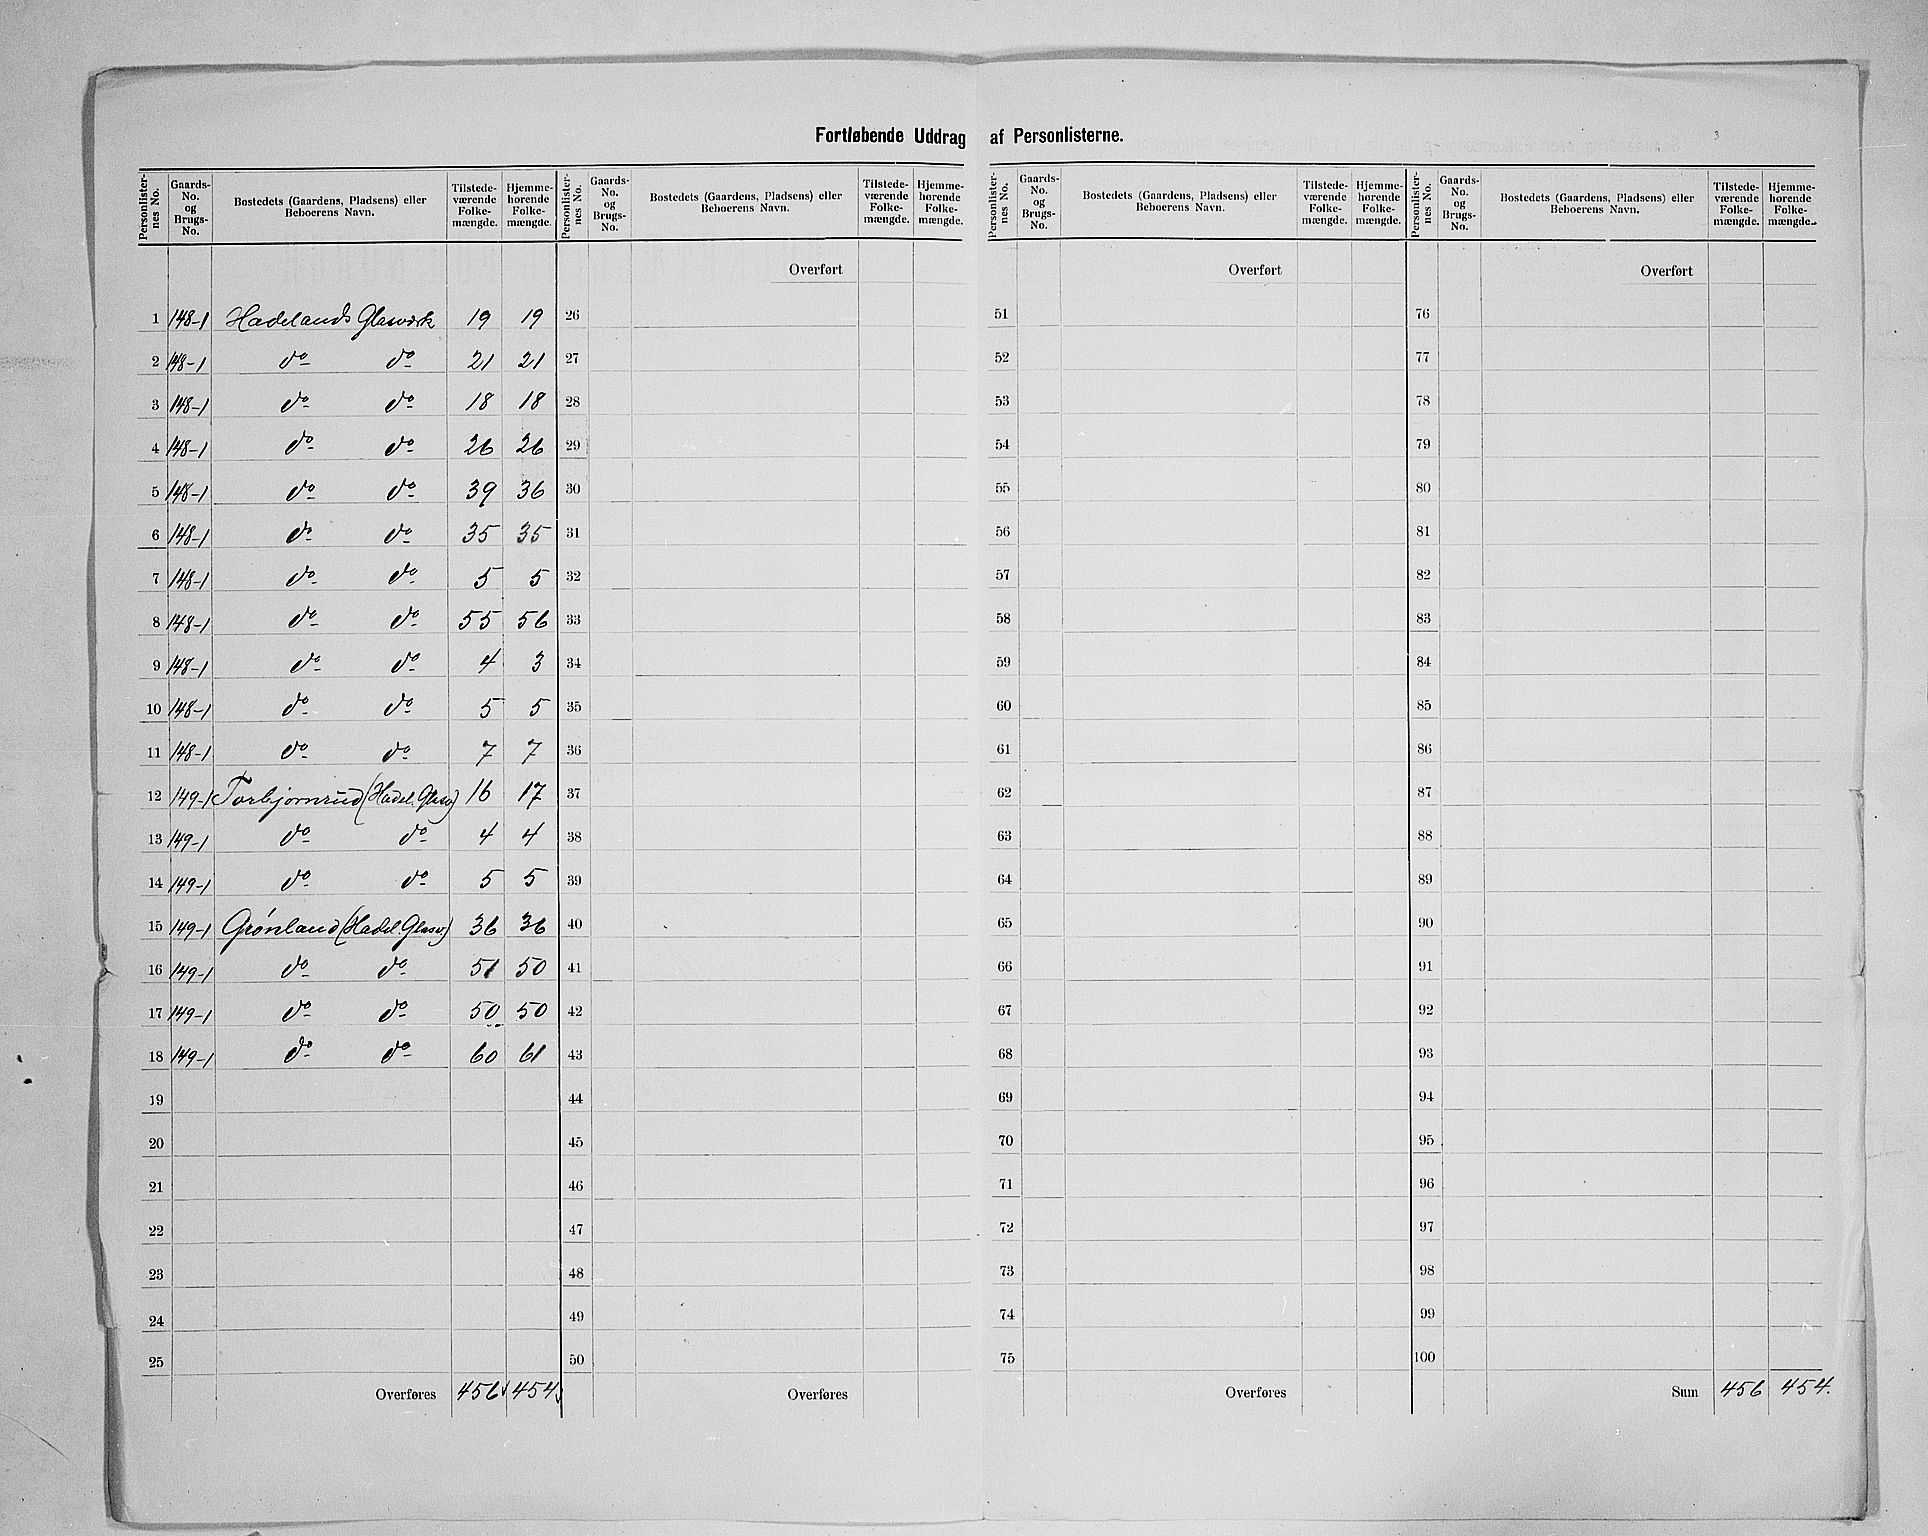 Fortløbende Uddrag af Personlisterne.
Personlister-nes No. | Gaards-No. og Brugs-No. | Bostedets (Gaardens, Pladsens) eller Beboerens Navn. | Tilstede-værende Folke-mængde. | Hjemme-hørende Folke-mængde.
1 148-1 Hadelands Glasværk 19 19
2 148-1 do do 21 21
3 148-1 do do 18 18
4 148-1 do do 26 26
5 148-1 do do 39 36
6 148-1 do do 35 35
7 148-1 do do 5 5
8 148-1 do do 55 56
9 148-1 do do 4 3
10 148-1 do do 5 5
11 148-1 do do 7 7
12 149-1 Torbjørnrud (Hadel. Glasv.) 16 17
13 149-1 do do 4 4
14 149-1 do do 5 5
15 149-1 Grønland (Hadel. Glasv.) 36 36
16 149-1 do do 51 50
17 149-1 do do 50 50
18 149-1 do do 60 61
19
20
21
22
23
24
25
Overføres 456 454
Personlister-nes No. | Gaards-No. og Brugs-No. | Bostedets (Gaardens, Pladsens) eller Beboerens Navn. | Tilstede-værende Folke-mængde. | Hjemme-hørende Folke-mængde.
Overført
26
27
28
29
30
31
32
33
34
35
36
37
38
39
40
41
42
43
44
45
46
47
48
49
50
Overføres
Personlister-nes No. | Gaards-No. og Brugs-No. | Bostedets (Gaardens, Pladsens) eller Beboerens Navn. | Tilstede-værende Folke-mængde. | Hjemme-hørende Folke-mængde.
Overført
51
52
53
54
55
56
57
58
59
60
61
62
63
64
65
66
67
68
69
70
71
72
73
74
75
Overføres
Personlister-nes No. | Gaards-No. og Brugs-No. | Bostedets (Gaardens, Pladsens) eller Beboerens Navn. | Tilstede-værende Folke-mængde. | Hjemme-hørende Folke-mængde.
Overført
76
77
78
79
80
81
82
83
84
85
86
87
88
89
90
91
92
93
94
95
96
97
98
99
100
Sum 456 454.